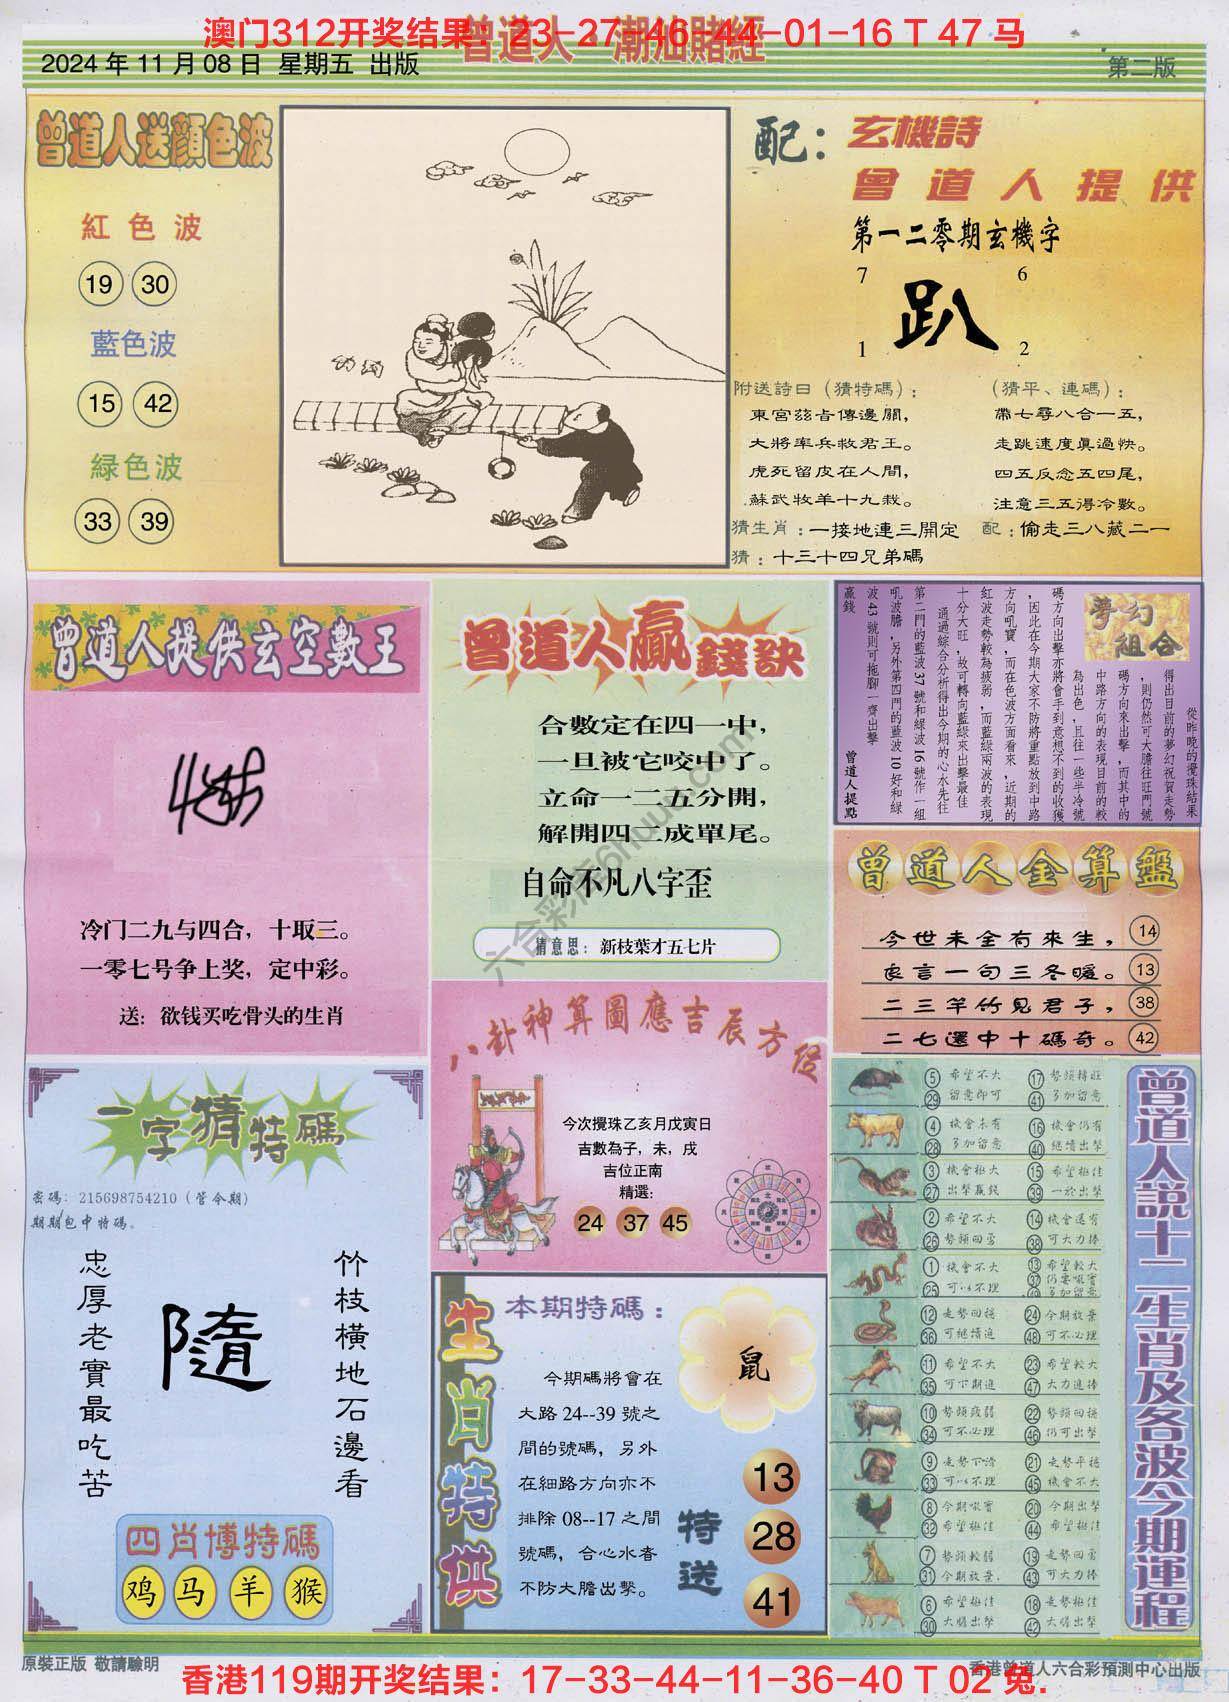 澳门312开奖结果：23-27-46-44-01-16 T 47 马
曾道人 潮汕賭經
2024 年 11 月 08 日 星期五 出版
第二版
曾道人送顏色波
紅色波
19 30
藍色波
15 42
綠色波
33 39
配：玄機詩
曾道人提供
第一二零期玄機字
7 6
趴
1 2
附送詩曰（猜特碼）：
東宮茲旨傳邊關，
大將率兵救君王。
虎死留皮在人間，
蘇武牧羊十九栽。
（猜平、連碼）：
帶七尋八合一五，
走跳速度真過快。
四五反念五四尾，
注意三五得冷數。
猜生肖：一接地連三開定 配：偷走三八藏二一
猜：十三十四兄弟碼
曾道人提供玄空數王
冷门二九与四合，十取三。
一零七号争上奖，定中彩。
送：欲钱买吃骨头的生肖
曾道人贏錢訣
合數定在四一中，
一旦被它咬中了。
立命一二五分開，
解開四二成單尾。
自命不凡八字歪
猜意思：新枝葉才五七片
夢幻組合
從昨晚的攪珠結果
得出目前的夢幻祝賀走勢
，則仍然可大膽往旺門號
碼方向來出擊，而其中的
中路方向的表現目前的較
為出色，且往一些半冷號
碼方向出擊亦將會手到意想不到的收獲
，因此在今期大家不防將重點放到中路
方向吼寶，而在色波方面看來，近期的
紅波走勢較為疲弱，而藍綠兩波的表現
十分大旺，故可轉向藍綠來出擊最佳
通過綜合分析得出今期的心水先往
第二門的藍波 37 號和綠波 16 號作一組
吼波膽，另外第四門的藍波 10 好和綠
波 43 號則可拖腳一齊出擊
贏錢
曾道人提點
曾道人金算盤
今世未全有來生， 14
良言一句三冬暖。 13
二三竿竹見君子， 38
二七還中十碼奇。 42
八卦神算圖應吉辰方位
今次攪珠乙亥月戊寅日
吉數為子，未，戌
吉位正南
精選:
24 37 45
一字猜特碼
密碼: 215698754210 (管今期)
期期包中特碼。
竹枝橫地石邊看
隨
忠厚老實最吃苦
四肖博特碼
鸡 马 羊 猴
生肖特供
本期特碼：
鼠
今期碼將會在
大路 24--39 號之
間的號碼，另外
在細路方向亦不
排除 08--17 之間
號碼，合心水者
不防大膽出擊。
特送
13
28
41
曾道人說十二生肖及各波今期運程
5 希望不大 17 勢頭轉旺
29 留意即可 41 多加留意
4 機會未有 16 機會仍有
28 多加留意 40 繼續出擊
3 機會極大 15 希望極佳
27 出擊贏錢 39 一於出擊
2 希望不大 14 機會還有
26 勢頭回勇 38 可大力捧
1 機會不大 13 希望較大
25 可以不理 37
12 走勢回穩 24 今期放棄
36 可繼續追 48 可不必理
11 希望不大 23 希望較大
35 可下期追 47 大力追捧
10 勢頭疲弱 22 勢頭回穩
34 可不必理 46 仍可出擊
9 走勢下滑 21 走勢平穩
33 可以不理 45 機會不大
8 今期吼寶 20 今期出擊
32 希望極佳 44 希望極佳
7 勢頭較弱 19 走勢回勇
31 今期放棄. 43 可大力捧
6 希望極佳 18 走勢極佳
30 大膽出擊 42 大膽出擊
原裝正版 敬請驗明
香港曾道人六合彩預測中心出版
香港119期开奖结果：17-33-44-11-36-40 T 02 兔.